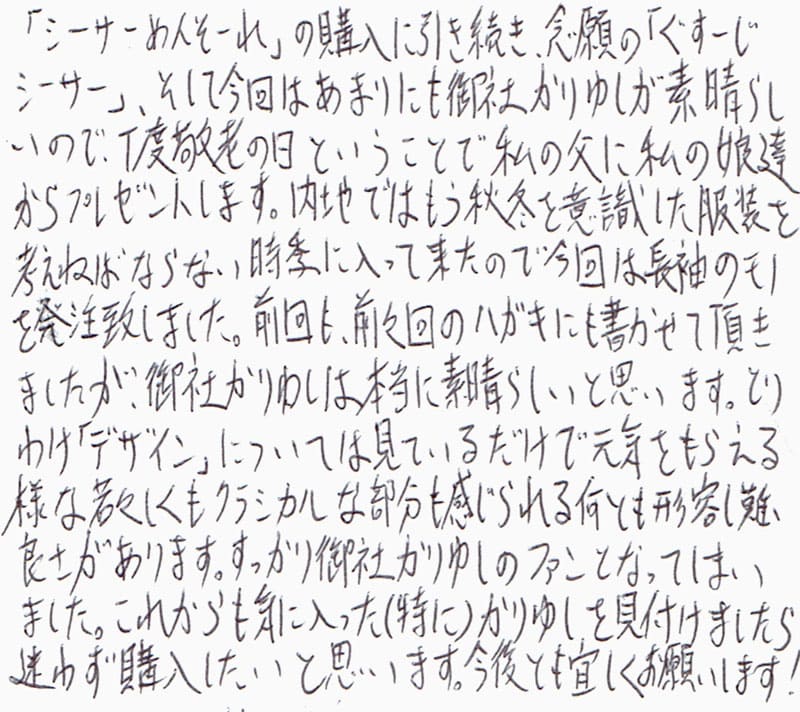 「シーサーめんそーれ」の購入に引き続き、念願の「ぐすーじ
シーサー」、そして今回はあまりにも御社かりゆしが素晴らし
いので、丁度敬老の日ということで私の父に私の娘達
からプレゼントします。内地ではもう秋冬を意識した服装を
考えねばならない時季に入って来たので今回は長袖のモノ
を発注致しました。前回も、前々回のハガキにも書かせて頂き
ましたが、御社かりゆしは本当に素晴らしいと思います。とり
わけ「デザイン」については見ているだけで元気をもらえる
様な若々しくもクラシカルな部分も感じられる何とも形容し難い
良さがあります。すっかり御社かりゆしのファンとなってしまい
ました。これからも気に入った(特に)かりゆしを見付けましたら
迷わず購入したいと思います。今後とも宜しくお願いします!